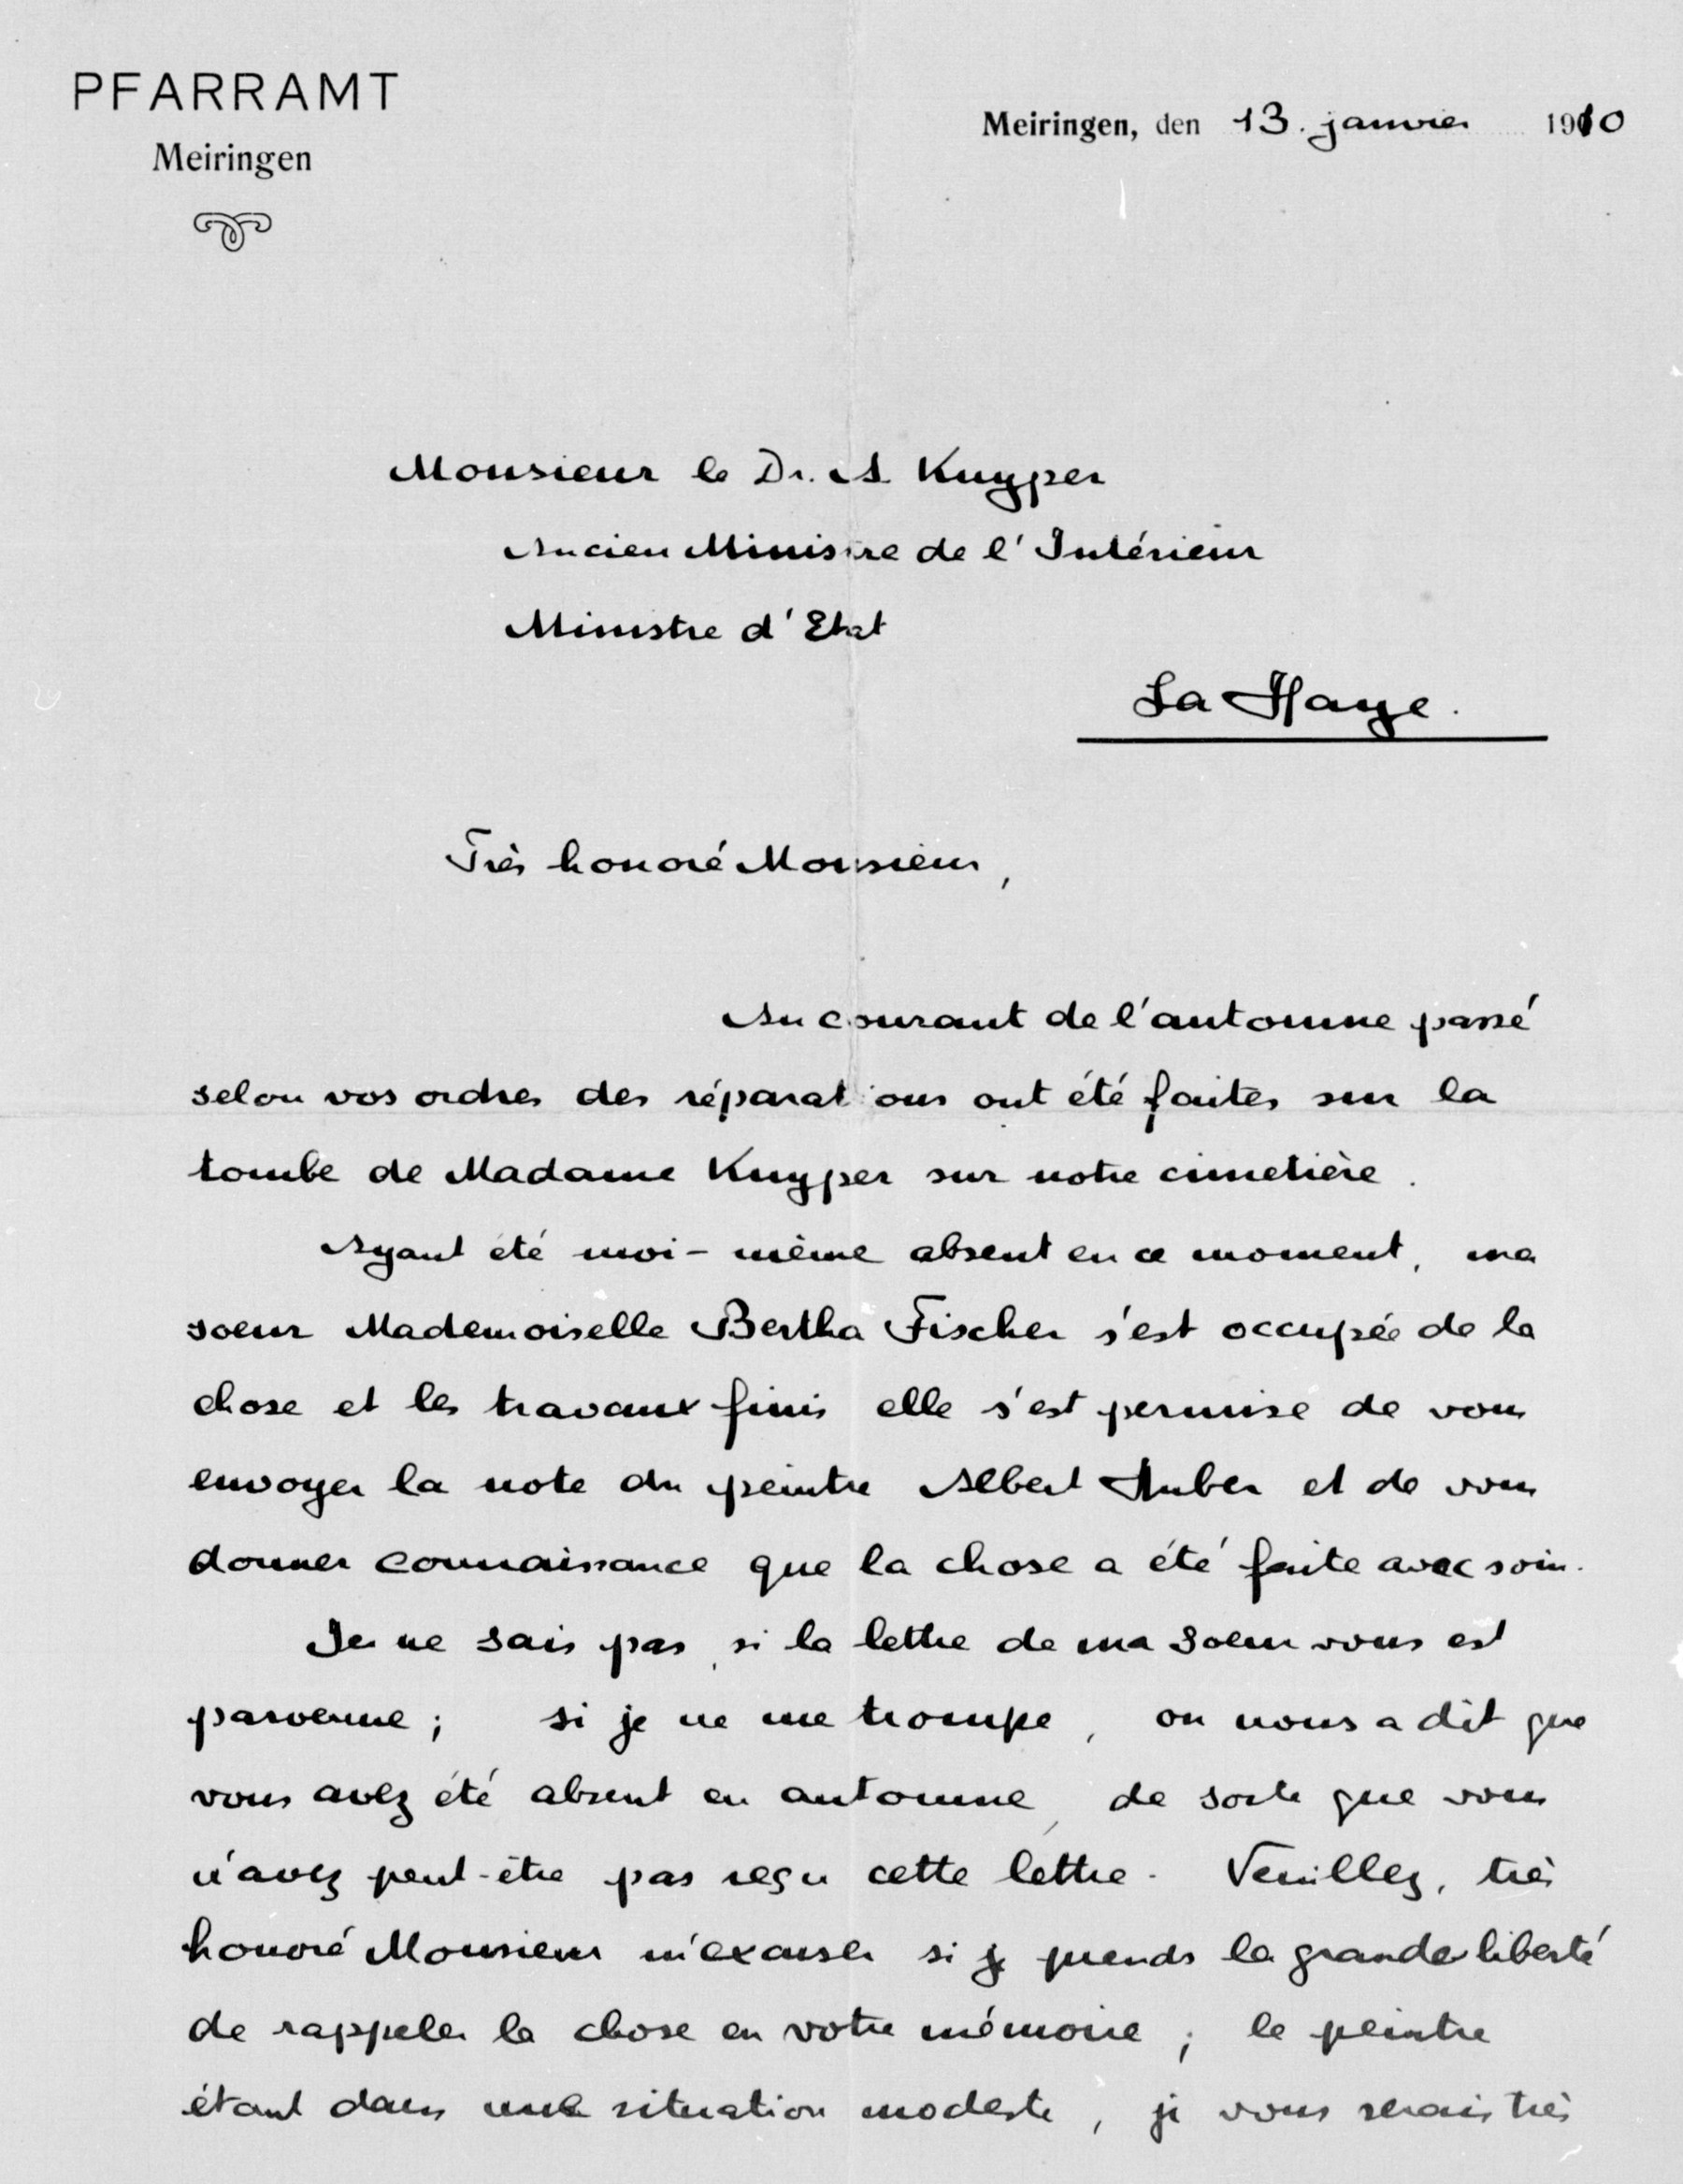 PFARRAMT
Meiringen
Meiringen, den 13. janvier 1910
Monsieur le Dr. A. Kuyper
Ancien Ministre de l'Intérieur
Ministre d'Etat
La Haye.
Très honoré Monsieur,
Au courant de l'automne passé
selon vos ordres des réparations ont été faites sur la
tombe de Madame Kuyper sur notre cimetière.
Ayant été moi-même absent en ce moment, ma
soeur Mademoiselle Bertha Fischer s'est occupée de la
chose et les travaux finis elle s'est permise de vous
envoyer la note du peintre Albert Huber et de vous
donner connaissance que la chose a été faite avec soin.
Je ne sais pas, si la lettre de ma soeur vous est
parvenue; si je ne me trompe, on nous a dit que
vous avez été absent en automne, de sorte que vous
n'avez peut-être pas reçu cette lettre. Veuillez, très
honoré Monsieur m'excuser si je prends la grande liberté
de rappeler la chose en votre mémoire; le peintre
étant dans une situation modeste, je vous serais très